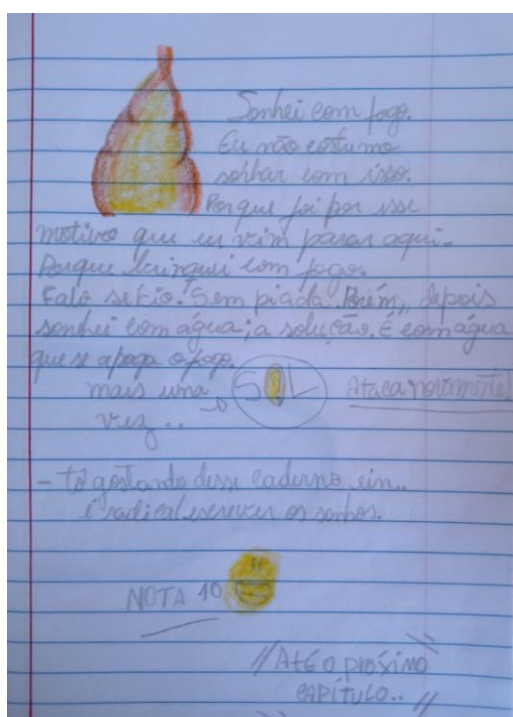 Sonhei com fogo.
Eu não costumo
sonhar com isso.
Porque foi por isse
motivo que eu vim parar aqui..
Porque brinquei com fogo.
Falo serio. Sem piada. Porém,, depois
sonhei com água; a solução. É com água
que se apaga o fogo.
mais uma SOL Ataca novamente!
vez..
- tô gostando desse caderno ein..
é radical escrever os sonhos.
NOTA 10
//Até o próximo
capítulo.. //